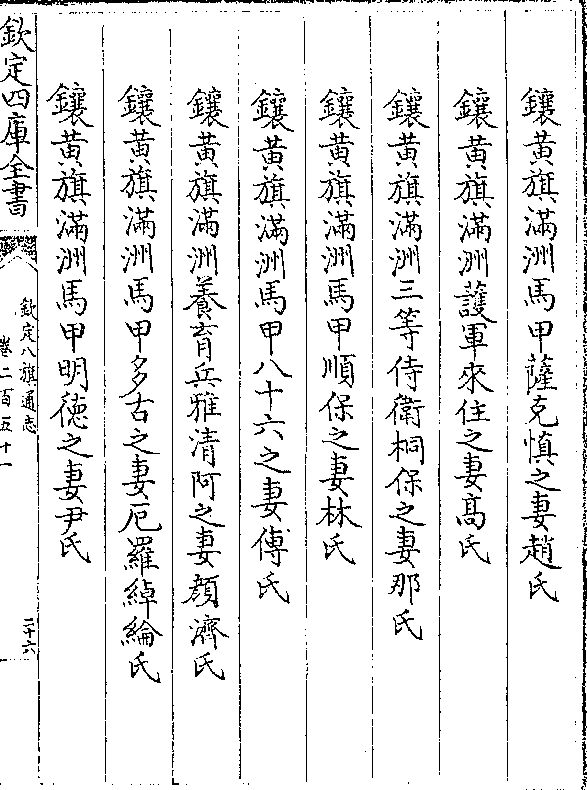 鑲黃旗滿洲馬甲薩克慎之妻趙氏
鑲黃旗滿洲護軍來住之妻高氏
鑲黃旗滿洲三等侍衛桐保之妻那氏
鑲黃旗滿洲馬甲順保之妻林氏
鑲黃旗滿洲馬甲八十六之妻傅氏
鑲黃旗滿洲養育兵雅清阿之妻顏濟氏
鑲黃旗滿洲馬甲多古之妻厄羅綽綸氏
鑲黃旗滿洲馬甲明德之妻尹氏
欽定四庫全書
欽定八旗通志
卷二百五十一
二十六